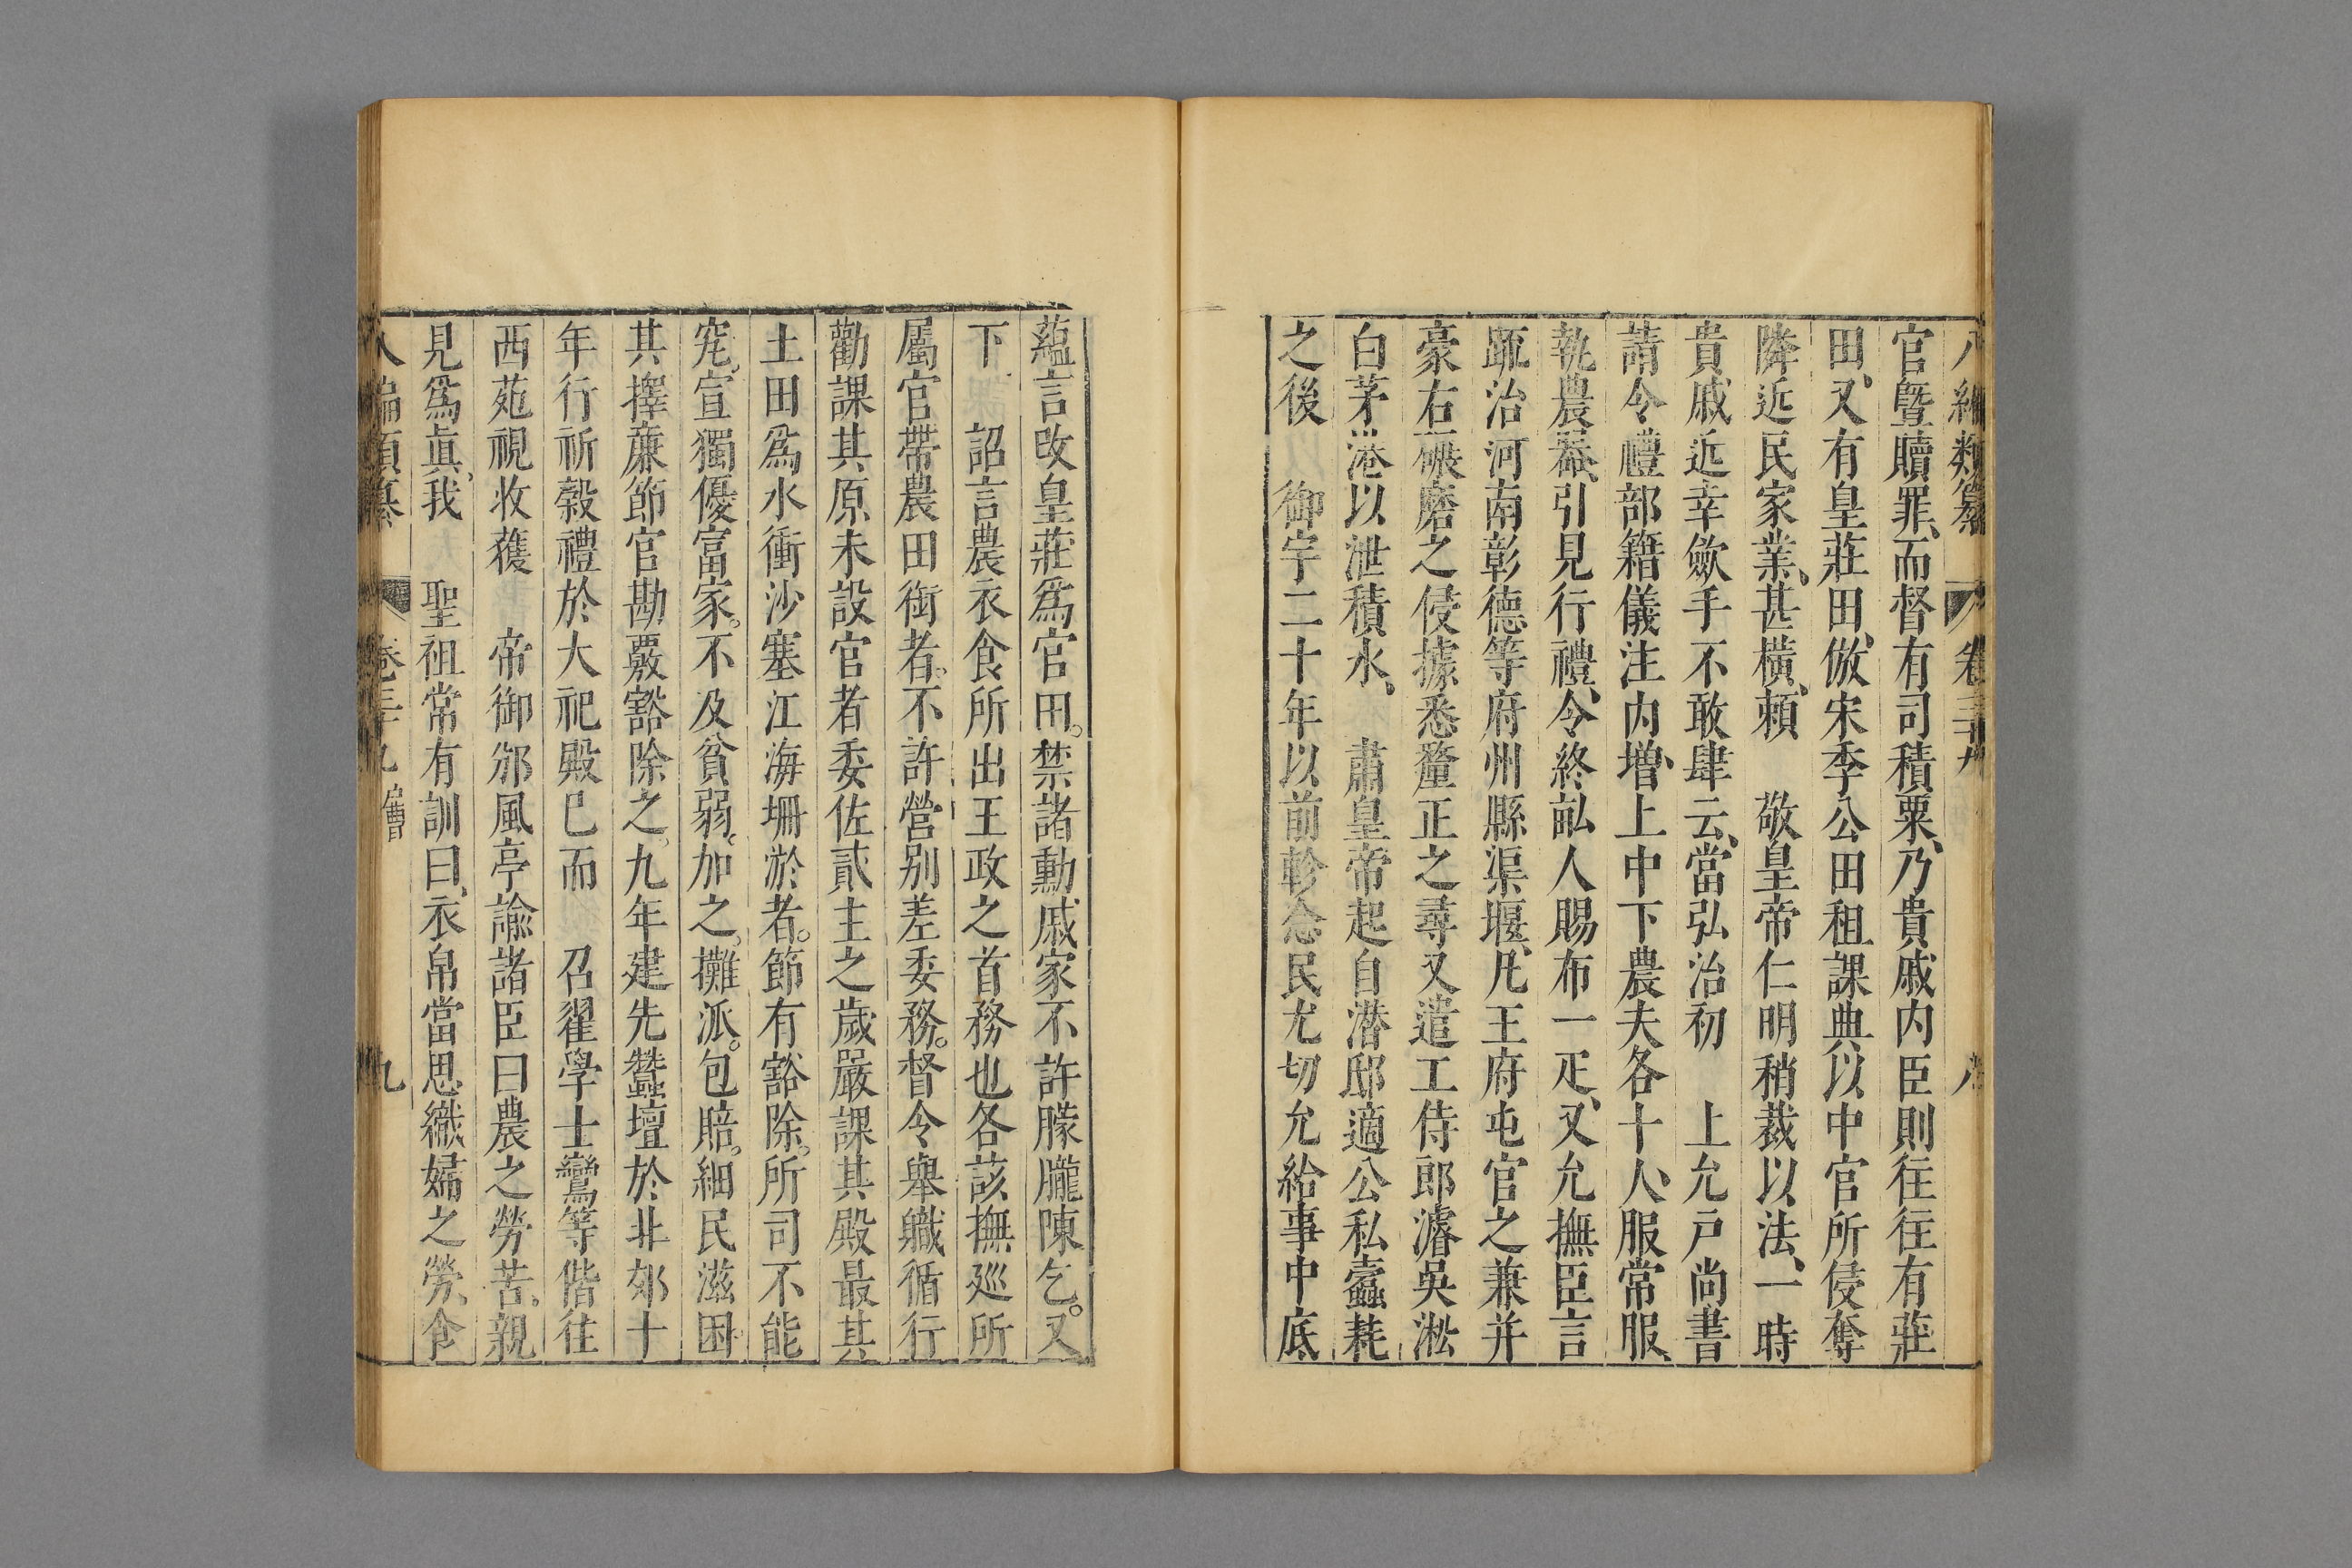 八編類纂 卷三十九 八
官曁贖罪、而督有司積粟、乃貴戚内臣則往往有莊
田、又有皇莊田、倣宋季公田租課典以中官所侵奪
隣近民家業、甚橫、頼 敬皇帝仁明稍裁以法、一時
貴戚近幸歛手不敢肆云、當弘治初 上允戸尚書
請令禮部籍儀注内増、上中下農夫各十人、服常服、
執農器、引見行禮、令終畝人賜布一疋、又允撫臣言
疏治河南彰德等府州縣渠堰、凡王府屯官之兼并
豪右碾磨之侵據悉釐正之尋又遣工侍郎濬吳淞
白茅港以泄積水、 肅皇帝起自潛邸適公私蠹耗
之後 御宇二十年以前軫念民尤切允給事中底
蘊言改皇莊爲官田。禁諸勳戚家不許朦朧陳乞。又
下 詔言農衣食所出王政之首務也各該撫廵所
屬官帶農田銜者。不許營别差委務。督令舉職循行
勸課其原未設官者委佐貳主之歲嚴課其殿最其
土田爲水衝沙塞江海坍淤者。節有豁除。所司不能
究。宣獨優富家。不及貧弱。加之。攤派。包賠。細民滋困。
其擇廉節官勘覈豁除之。九年建先蠶壇於北郊十
年行祈穀禮於大祀殿巳而 召翟學士鸞等偕往
西苑視收穫 帝御邠風亭諭諸臣曰農之勞苦。親
見爲眞。我 聖祖常有訓曰、衣帛當思織婦之勞、食
八編類纂 卷三十九 九